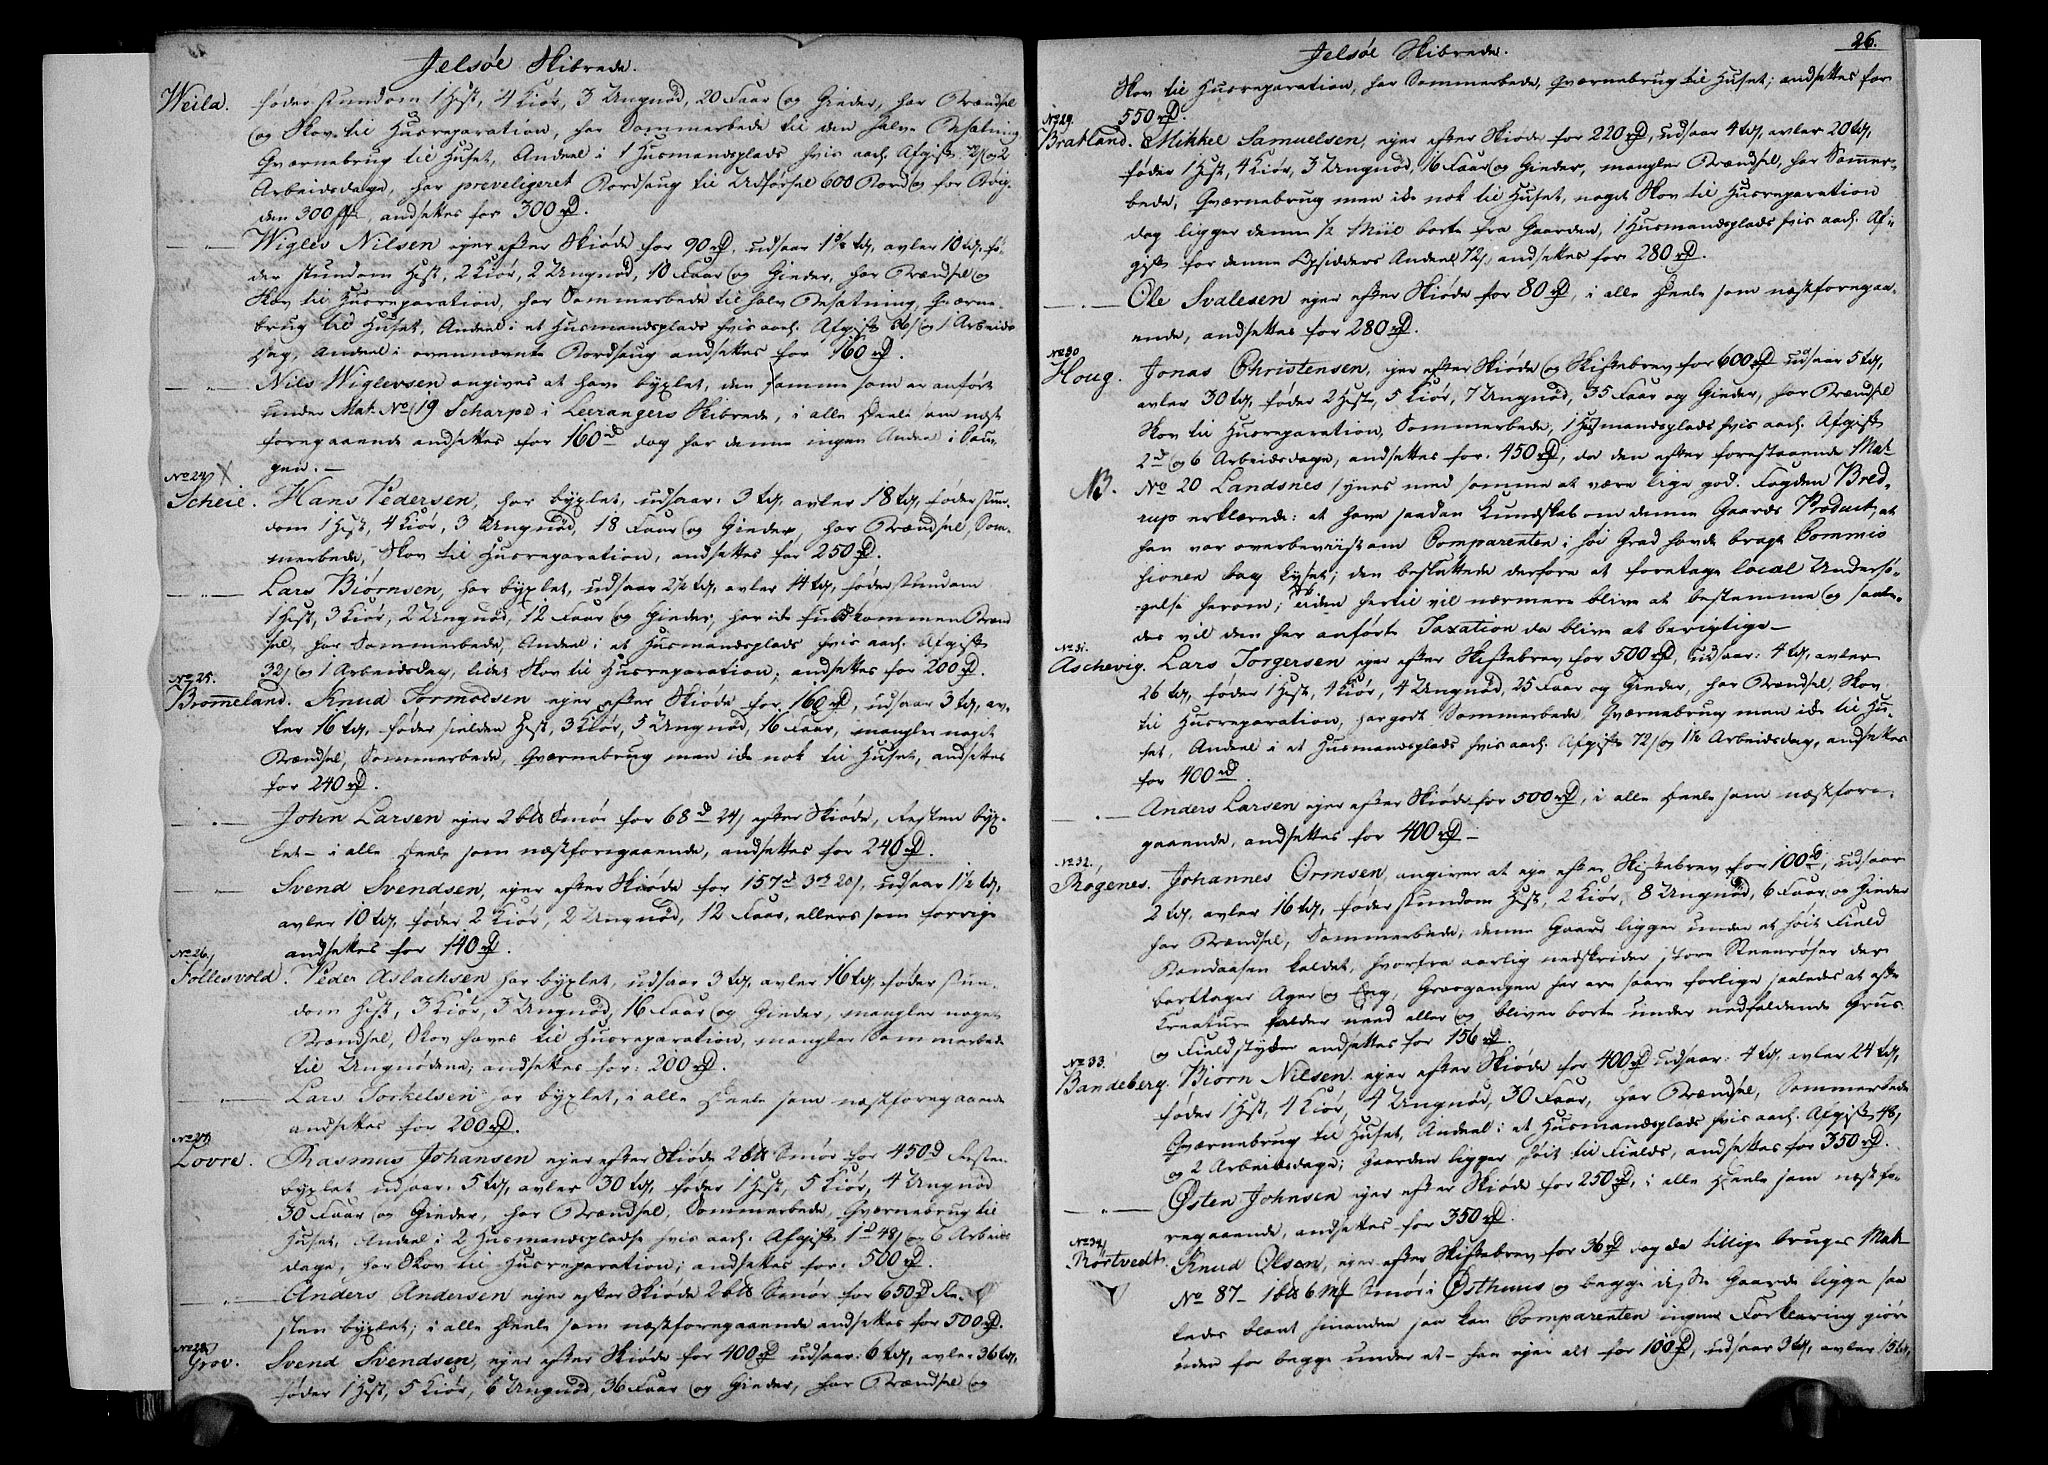 Jelsøe Skibrede.
Weila. føder stundom 1 Hest, 4 Kiør, 3 Ungnød, 20 Faar og Gieder, har Brændsel
og Skov til Husreparation, har Sommerbede til den halve Besætning
Qværnebrug til Huset, Andeel i 1 Husmandsplads hvis aarl. Afgift 72 s og 2
Arbeidsdage, har preveligeret Bordsaug til Udførsel 600 Bord og for Bøig-
den 300, andsettes for 300 rd.
Wiglev Nilsen ejer efter Skiøde for 90 rd. udsaar 1 td, avler 10 td, fø-
der stundom Hest, 2 Kiør, 2 Ungnød, 10 Faar og Gieder, har Brændsel og
Skov til Husreparation, har Sommerbede til halv Besætning, Qværne-
brug til Huset, Andeel i et Husmandsplads hvis aarl. Afgift 36 s og 1 Arbeids
Dag, Andeel i ovennævnte Bordsaug andsettes for 160 rd.
Nils Wiglevsen angives at have byxlet, den samme som er anført
under Mat. No 19 Scharpe i Leerangers Skibrede, i alle Deele som næst
foregaaende andsettes for 160 rd dog har denne ingen Andeel i Sau-
gen.
No 24
Scheie. Hans Pedersen, har byxlet, udsaar: 3 td, avler 18 td, føder stun-
dom 1 Hest, 4 Kiør, 3 Ungnød, 18 Faar og Gieder, har Brændsel, Som-
merbede, Skov til Husreparation, andsettes for 250 rd.
Lars Biørnsen, har byxlet, udsaar 2½ td, avler 14 td, føder stundom
1 Hest, 3 Kiør, 2 Ungnød, 12 Faar og Gieder, har ike fuldkommen Brænd
sel, har Sommerbede, Andeel i et Husmandsplads hvis aarl. Afgift
32 s og 1 Arbeidsdag, lidet Skov til Husreparation; andsettes for 200 rd.
No 25.
Bromeland. Knud Tormodsen ejer efter Skiøde for 160 rd, udsaar 3 td, av-
ler 16 td, føder sielden Hest, 3 Kiør, 5 Ungnød, 16 Faar, mangler noget
Brændsel, Sommerbede, Qværnebrug men ike nok til Huset, andsettes
for 240 rd.
John Larsen ejer 2 bls Smør for 68 d 24 s efter Skiøde, Resten byx-
let i alle Deele som næstforegaaende, andsettes for 240 rd.
Svend Svendsen, ejer efter Skiøde for 157 rd 3 20 s, udsaar 1½ td,
avler 10 td, føder 2 Kiør, 2 Ungnød, 12 Faar, ellers som forrige
andsettes for 140 rd.
No 26
Follesvold. Peder Aslachsen har byxlet, udsaar 3 td, avler 16 td, føder stun-
dom Hest, 3 Kiør, 3 Ungnød, 16 Faar og Gieder, mangler noget
Brændsel, Skov haves til Husreparation, mangler Sommerbede
til Ungnødene; andsettes for: 200 rd.
Lars Torkelsen har byxlet, i alle Deele som næstforegaaende
andsettes for 200 rd.
No 27
Lovre. Rasmus Johansen ejer efter Skiøde 2 bls Smør for 450 d Resten
byxlet udsaar: 5 td, avler 30 td, føder 1 Hest, 5 Kiør, 4 Ungnød
30 Faar og Gieder, har Brændsel, Sommerbede, Qværnebrug til
Huset, Andeel i 2 Husmandspladse hvis aarl. Afgift 1 d 48 s og 6 Arbeids
dage, har Skov til Husreparation; andsettes for: 500 rd.
Anders Andersen ejer efter Skiøde 2 bls Smør for 650 d Re-
sten byxlet; i alle Deele som næstforegaaende andsettes for 500 rd.
No 28
Grov. Svend Svendsen, ejer efter Skiøde for 400 rd udsaar: 6 td, avler 36 td,
føder 1 Hest, 5 Kiør, 6 Ungnød, 36 Faar og Gieder, har Brændsel og
Jelsøe Skibrede.
26.
Skov til Husreparation, har Sommerbede, Qværnebrug til Huset; andsettes for
550 rd.
No 29.
Bratland. Mikkel Samuelsen, ejer efter Skiøde for 220 rd, udsaar 4 td, avler 20 td,
føder 1 Hest, 4 Kiør, 3 Ungnød, 16 Faar og Gieder, mangler Brændsel, har Sommer-
bede, Qværnebrug men ike nok til Huset, noget Skov til Husreparation
dog ligger denne ½ Miil borte fra Gaarden, 1 Husmandsplads hvis aarl. Af-
gift for denne Opsidders Andeel 72 s, andsettes for 280 rd.
Ole Svalesen ejer efter Skiøde for 80 rd, i alle Deele som næstforegaa-
ende, andsettes for 280 rd.
No 30
Houg. Jonas Christensen, ejer efter Skiøde og Skiftebrev for 600 rd udsaar 5 td,
avler 30 td, føder 2 Heste, 5 Kiør, 7 Ungnød, 35 Faar og Gieder, har Brændsel
Skov til Husreparation, Sommerbede, 1 Husmandsplads hvis aarl. Afgift
2 d og 6 Arbeidsdage, andsettes for: 450 rd, da den efter forestaaende Mat
NB. No 20 Landsnes synes med samme at være lige god. Fogden Bred-
rup erklærede: at have saadan Kundskab om denne Gaards Product, at
han var overbeviist om Comparenten i høi Grad havde bragt Commis
sionen bag Lyset; den besluttede derfore at foretage local Undersø-
gelse herom; Tiden hertil vil nærmere blive at bestemme og saale-
des vil den her anførte Taxation da blive at berigtige
No 31.
Aschevig. Lars Torgersen ejer efter Skiftebrev for 500 rd, udsaar: 4 td, avler
26 td, føder 1 Hest, 4 Kiør, 4 Ungnød, 25 Faar og Gieder, har Brændsel, Skov
til Husreparation, har godt Sommerbede, Qværnebrug men ike til Hu-
set, Andeel i et Husmandsplads hvis aarl. Afgift 72 s og 1½ Arbeidsdag, andsettes
for 400 rd.
Anders Larsen ejer efter Skiøde for 500 rd, i alle Deele som næstfore-
gaaende, andsettes for 400 rd
No 32.
Røgenes. Johannes Ormsen, angiver at eje efter Skiftebrev for 100 rd, udsaar
2 td, avler 16 td, føder stundom Hest, 2 Kiør, 8 Ungnød, 6 Faar og Gieder
har Brændsel, Sommerbede, denne Gaard ligger under et høit Field
Bandaasen kaldet, hvorfra aarlig nedskrider store Steenrøser der
borttager Ager og Eng, Græsgangen her ere saare farlige saaledes at ofte
Creature falder need eller og bliver borte under nedfaldende Grus
og Fieldstyker andsettes for 156 rd.
No 33.
Bandeberg. Biørn Nilsen ejer efter Skiøde for 400 rd udsaar: 4 td, avler 24 td,
føder 1 Hest, 4 Kiør, 4 Ungnød, 30 Faar, har Brændsel, Sommerbede
Qværnebrug til Huset, Andeel i et Husmandsplads hvis aarl. Afgift 48 s
og 2 Arbeidsdage; Gaarden ligger høit til Fields, andsettes for 350 rd.
Østen Johnsen ejer efter Skiøde for 250 rd, i alle Deele som næstfo-
regaaende, andsettes for 350 rd.
No 34
Rørtvedt. Knud Olsen, ejer efter Skiftebrev for 36 rd dog da tillige bruges Mat
No 87 - 1 bls 6 Smør i Østhuus og begge disse Gaarde ligge saa
ledes blant hinanden saa kan Comparenten ingen Forklaring giøre
uden for begge under et - han ejer alt for 100 rd, udsaar 3 td, avler 15 td,